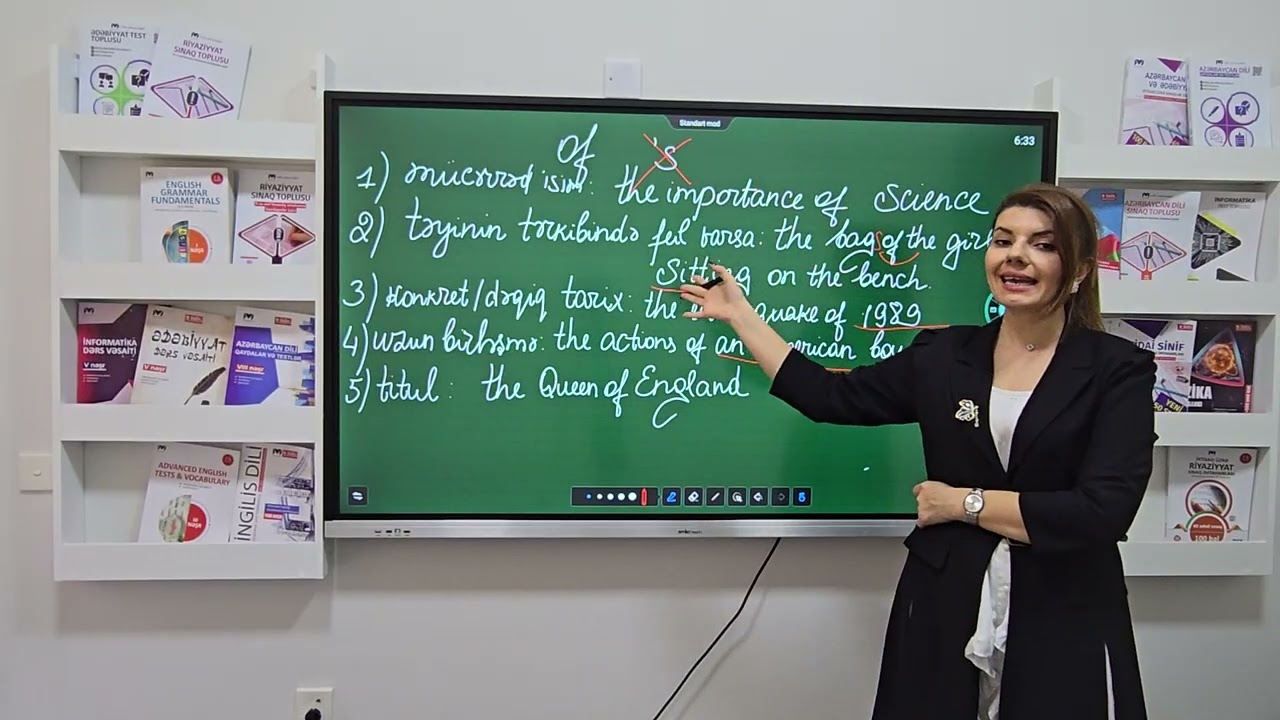 ƏDƏBİYYAT TEST
TOPLUSU
RİYAZİYYAT
SINAQ TOPLUSU
ENGLISH
GRAMMAR
FUNDAMENTALS
RİYAZİYYAT
SINAQ TOPLUSU
İNFORMATİKA
DƏRS VƏSAİTİ
V nəşr
ƏDƏBİYYAT
DƏRS VƏSAİTİ
AZƏRBAYCAN DİLİ
QAYDALAR VƏ TESTLƏR
VIII nəşr
ADVANCED ENGLISH
TESTS & VOCABULARY
İNGİLİS DİLİ
Standart mod
6:33
Of 's
1) mücərrəd isim: the importance of Science
2) təyinin tərkibində feil varsa: the bag of the girl
sitting on the bench.
3) Konkret/dəqiq tarix: the quake of 1989
4) uzun birləşmə: the actions of an American
5) titul: the Queen of England
AZƏRBAYCAN
VƏ ƏDƏBİYYAT
AZƏRBAYCAN DİLİ
AZƏRBAYCAN DİLİ
SINAQ TOPLUSU
İNFORMATİKA
SINIF
YENİ
RİYAZİYYAT
100 bal